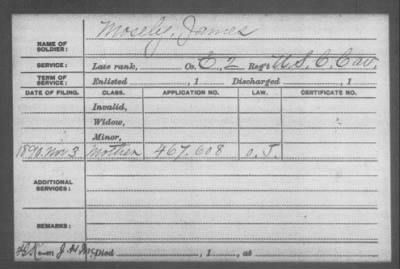 NAME OF SOLDIER: Mosely, James
SERVICE: Late rank, Co. E, 2 Reg't U.S.C. Cav.
TERM OF SERVICE: Enlisted , 1 Discharged , 1
DATE OF FILING. CLASS. APPLICATION NO. LAW. CERTIFICATE NO.
Invalid,
Widow,
Minor,
1890. Nov 3 Mother 467.608 O.J.
ADDITIONAL SERVICES:
REMARKS:
J. H. Died , 1 , at